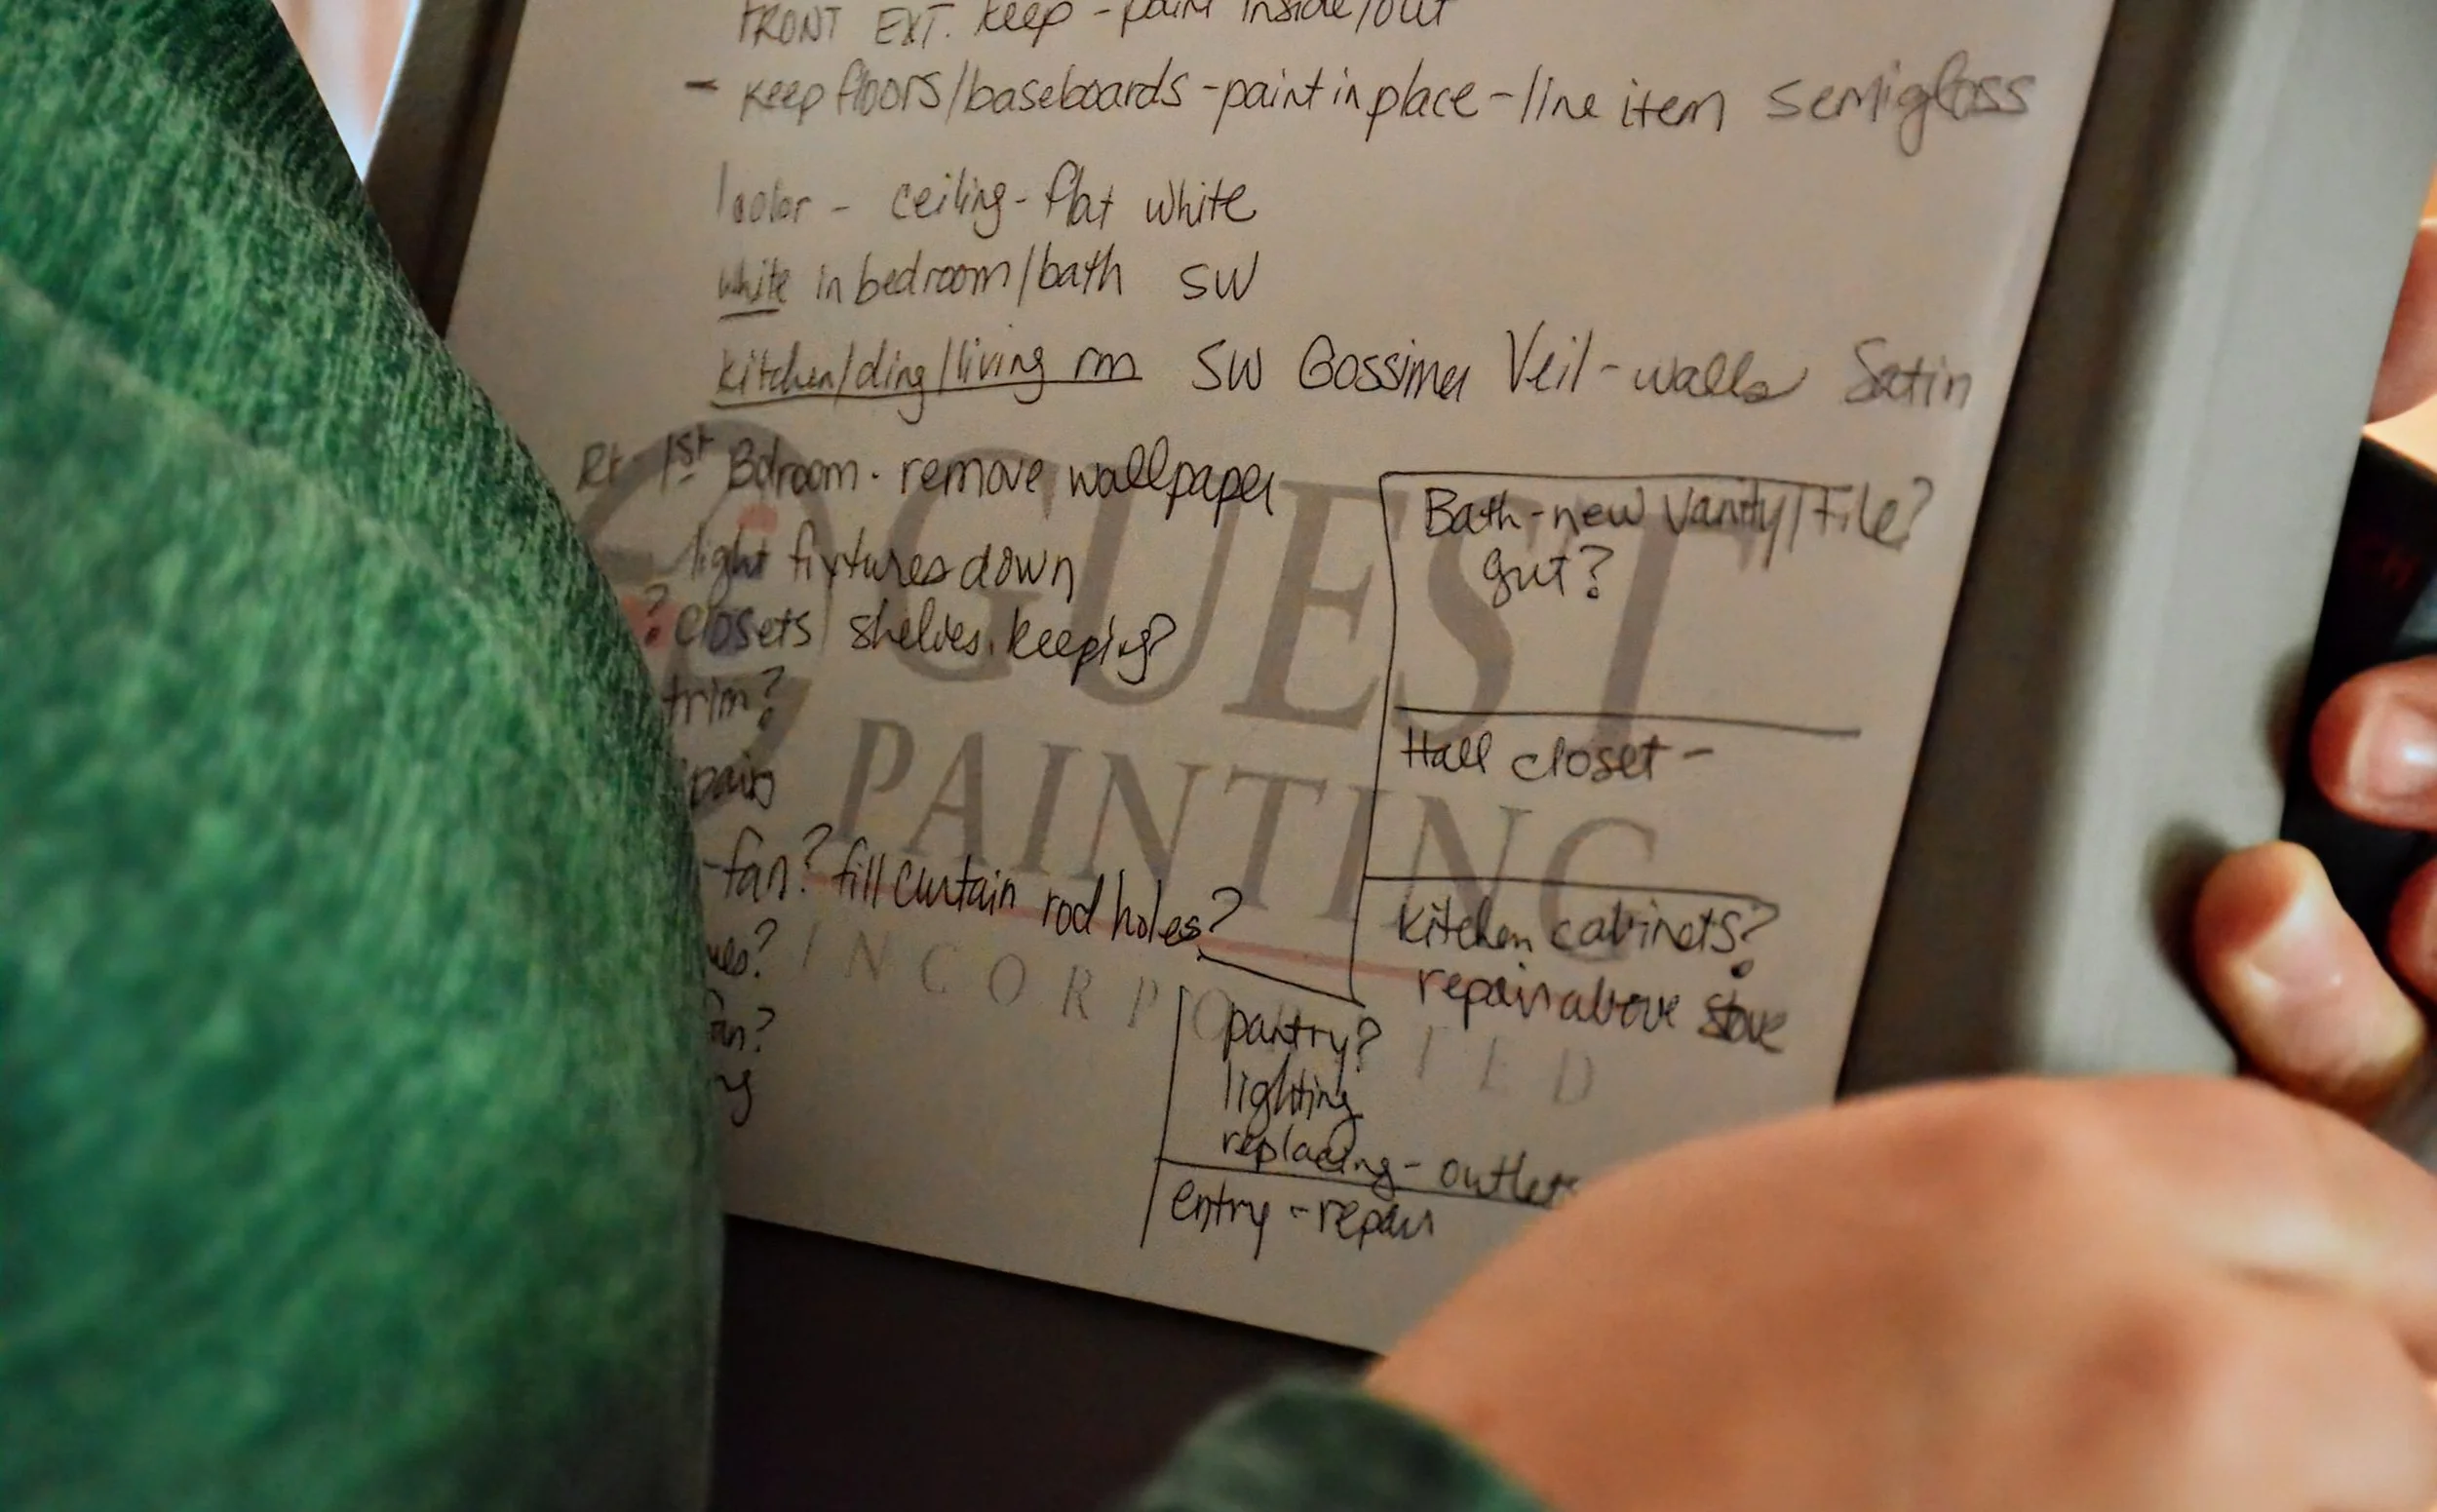 FRONT EXT. keep - paint inside/out
- keep floors/baseboards - paint in place - line item semigloss
1 color - ceiling - flat white
white in bedroom/bath SW
kitchen/ding/living rm SW Gossimer Veil - walls Satin
Rt. 1st Bdroom. remove wallpaper
light fixtures down
? closets/shelves. keeping?
trim?
fan? fill curtain rod holes?
Bath - new vanity/tile?
gut?
Hall closet -
kitchen cabinets?
repair above stove
pantry?
lighting
replacing - outlets
entry - repair
GUEST
PAINTING
INCORPORATED